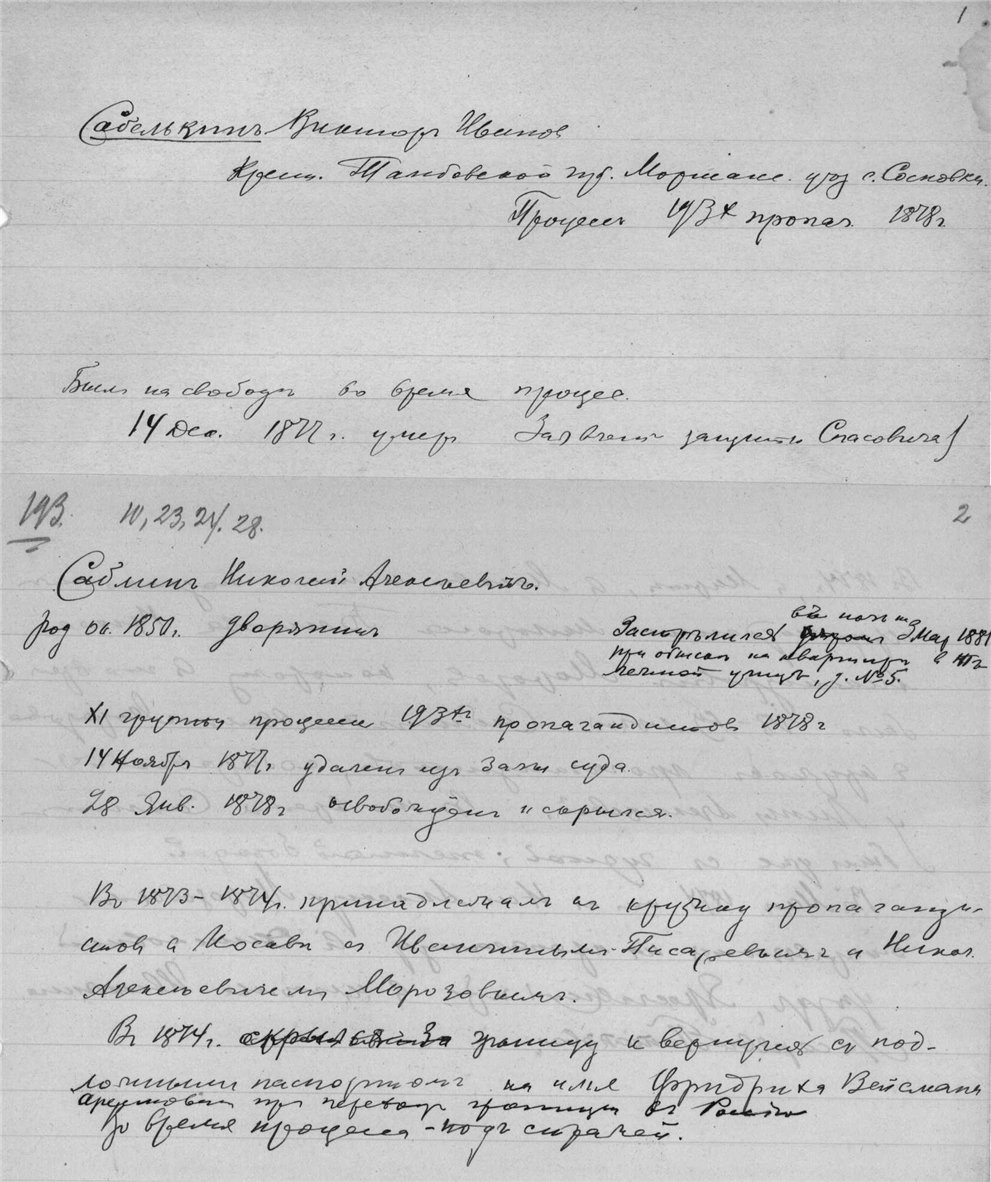 1
Сабелькинъ Викторъ Иванов
Крест. Тамбовской губ. Моршанс. уѣз с. Сосновки.
Процессъ 193х пропаг. 1878 г
Былъ на свободѣ во время процес.
14 Дек. 1877 г. умеръ Заявленіе защитн Спасовича)
193. 10, 23, 24. 28.
2
Саблинъ Николай Алексѣевичъ.
род ок. 1850 г. дворянинъ
Застрѣлился въ ночь на 3 Мар 1881
при обыскѣ на квартирѣ в Те-
лѣжной улицѣ, д. № 5.
XI группы процесса 193хъ пропагандистов 1878 г
14 Ноября 1877 г. удаленъ изъ залы суда
28 Янв. 1878 г освобожденъ и скрылся.
Въ 1873 – 1874 г. принадлежалъ къ кружку пропаганди-
стов в Москвѣ съ Иванчинымъ-Писаревымъ и Никол.
Алексѣевичемъ Морозовымъ.
В 1874 г. скрылся за границу и вернулся съ под-
ложнымъ паспортомъ на имя Фридриха Вейсмана
Арестованъ при переходѣ границы въ Россію
Во время процесса – подъ стражей.